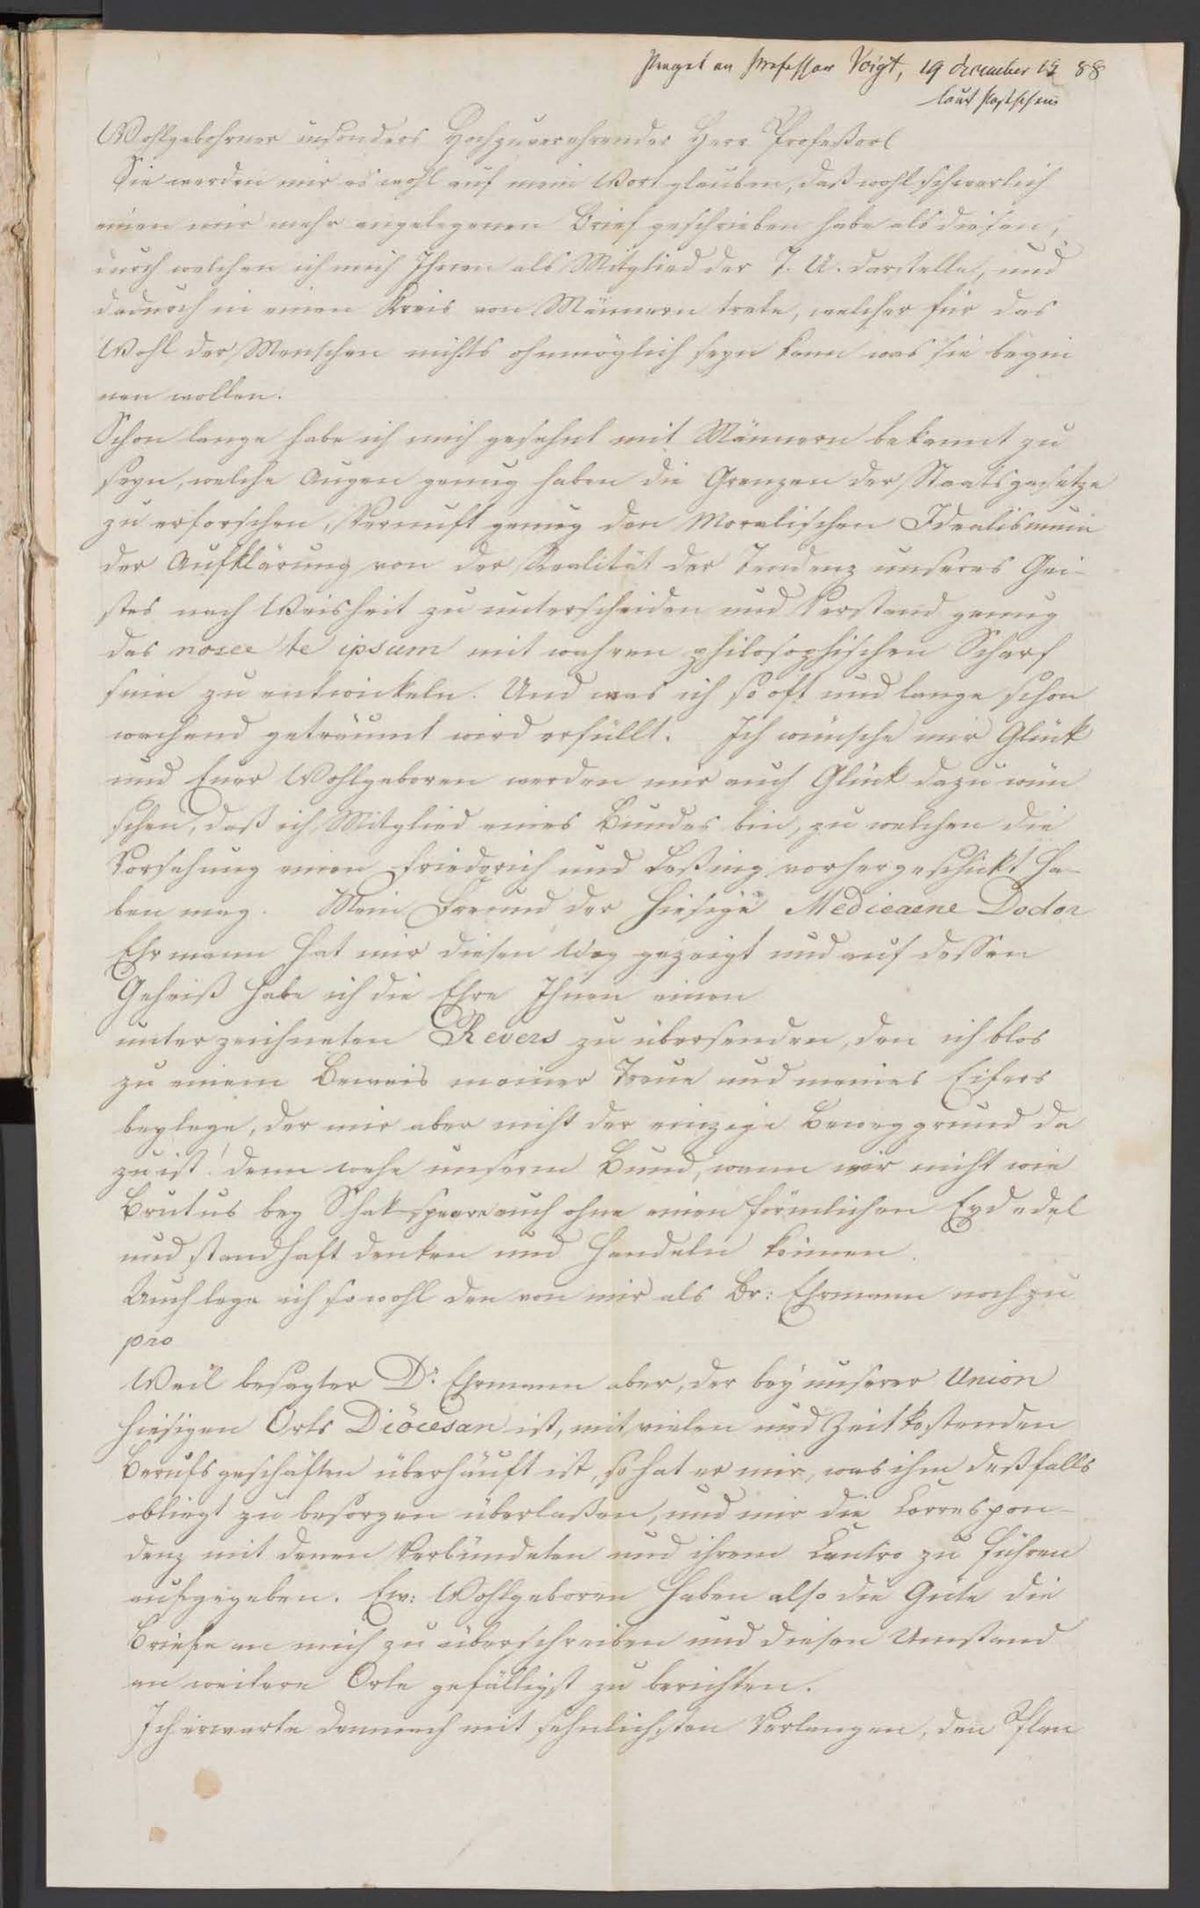 an Professor Voigt, 19 december 88
laut Postschein
Wohlgebohrner insonders Hochzuverehrender Herr Profeßor!
Sie werden mir es wohl auf mein Wort glauben, daß wohl schwerlich
einen mir mehr angelegenen Brief geschrieben habe als diesen,
durch welchen ich mich Ihnen als Mitglied der T. U. darstelle, und
dadurch in einen Kreis von Männern trete, welcher für das
Wohl der Menschen nichts ohnmöglich seyn kann was sie begin
nen wollen.
Schon lange habe ich mich gesehnt mit Männern bekannt zu
seyn, welche Augen genug haben die Grenzen der Staatsgesetze
zu erforschen, Vernunft genug den Moralischen Idealismum
der Aufklärung von der Realität der Tendenz unseres Gei-
stes nach Weisheit zu unterscheiden und Verstand genug
das nosce te ipsum mit wahren philosophischen Scharf
sinn zu entwickeln. Und was ich so oft und lange schon
wachend geträumt wird erfüllt. Ich wünsche mir Glück
und Euer Wohlgeboren werden mir auch Glück dazu wün
schen, daß ich Mitglied eines Bundes bin, zu welchen die
Vorsehung einen Friederich und Leßing vorhergeschickt ha-
ben mag. Mein Freund der hiesige Medicaene Doctor
Ehrmann hat mir diesen Weg gezeigt und auf dessen
Geheiß habe ich die Ehre Ihnen einen
unterzeichneten Revers zu übersenden, den ich blos
zu einem Beweis meiner Treue und meines Eifers
beylege, der mir aber nicht der einzige Beweggrund da
zu ist! denn wehe unserm Bund, wenn wir nicht wie
Brutus bey Schakspeare auch ohne einen förmlichen Eyd edel
und standhaft denken und handeln können.
Auch lege ich sowohl den von mir als Br: Ehrmann noch zu
pro
Weil besagter Dr. Ehrmann aber, der bey unserer Union
hiesigen Orts Diöcesan ist, mit vielen und Zeitkostenden
Berufsgeschäften überhäuft ist, so hat er mir, was ihm deßfalls
obliegt zu besorgen überlaßen, und mir die Correspon-
denz mit denen Verbündeten und ihrem Centro zu führen
aufgegeben. Ew: Wohlgeboren haben also die Güte die
Briefe an mich zu überschreiben und diesen Umstand
an weitere Orte gefälligst zu berichten.
Ich erwarte demnach mit sehnlichsten Verlangen, den Plan